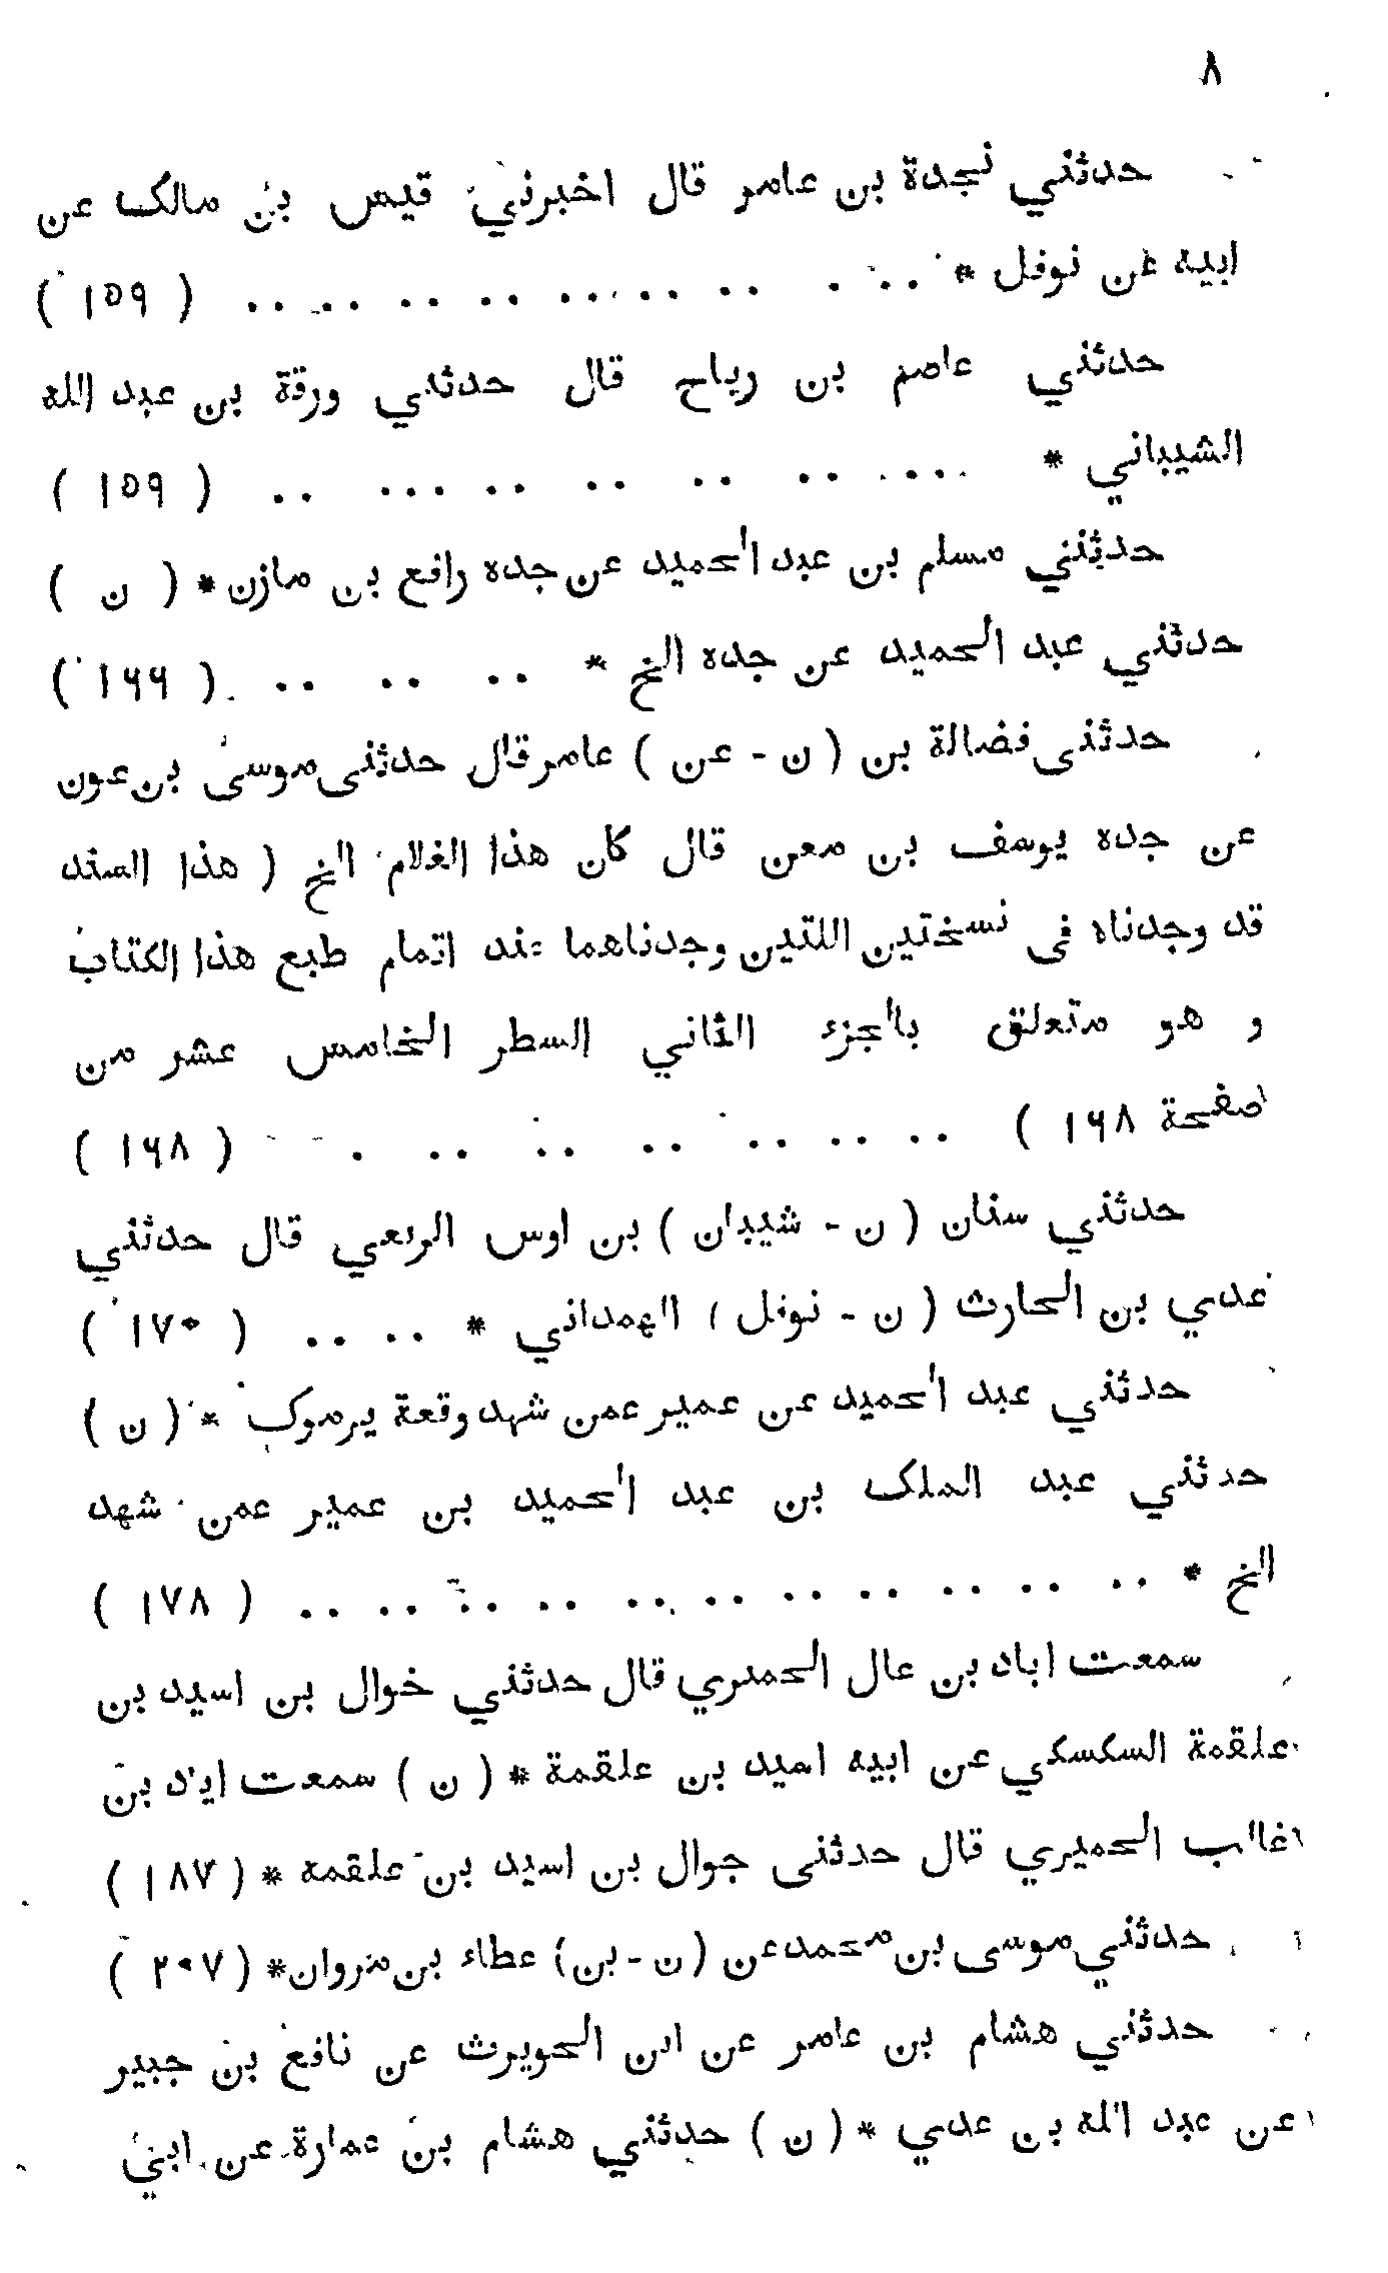 ٨
حدثني نجدة بن عامر قال اخبرني قيس بن مالك عن
ابيه عن نوفل * .. .. .. .. .. .. .. .. ( ١٥٩ )
حدثني عاصم بن رياح قال حدثني ورقة بن عبد الله
الشيباني * .... .. .. .. .. ... .. ( ١٥٩ )
حدثني مسلم بن عبد الحميد عن جده رافع بن مازن * ( ن )
حدثني عبد الحميد عن جده الخ * .. .. .. ( ١٦٦ )
حدثنى فضالة بن ( ن - عن ) عامر قال حدثنى موسى بن عون
عن جده يوسف بن معن قال كان هذا الغلام الخ ( هذا السند
قد وجدناه فى نسختين اللتين وجدناهما عند اتمام طبع هذا الكتاب
و هو متعلق بالجزء الثاني السطر الخامس عشر من
صفحة ١٦٨ ) .. .. .. .. .. .. . ( ١٦٨ )
حدثني سنان ( ن - شيبان ) بن اوس الربعي قال حدثني
عدي بن الحارث ( ن - نوفل ) الهمداني * .. .. .. ( ١٧٠ )
حدثني عبد الحميد عن عمير عمن شهد وقعة يرموك * ( ن )
حدثني عبد الملك بن عبد الحميد بن عمير عمن شهد
الخ * .. .. .. .. .. .. .. .. .. .. .. ( ١٧٨ )
سمعت اباد بن عال الحمدري قال حدثني خوال بن اسيد بن
علقمة السكسكي عن ابيه اميد بن علقمة * ( ن ) سمعت اياد بن
غالب الحميري قال حدثنى جوال بن اسيد بن علقمة * ( ١٨٧ )
حدثني موسى بن محمد عن ( ن - بن ) عطاء بن مروان * ( ٢٠٧ )
حدثني هشام بن عامر عن ابن الحويرث عن نافع بن جبير
عن عبد الله بن عدي * ( ن ) حدثني هشام بن عمارة عن ابي